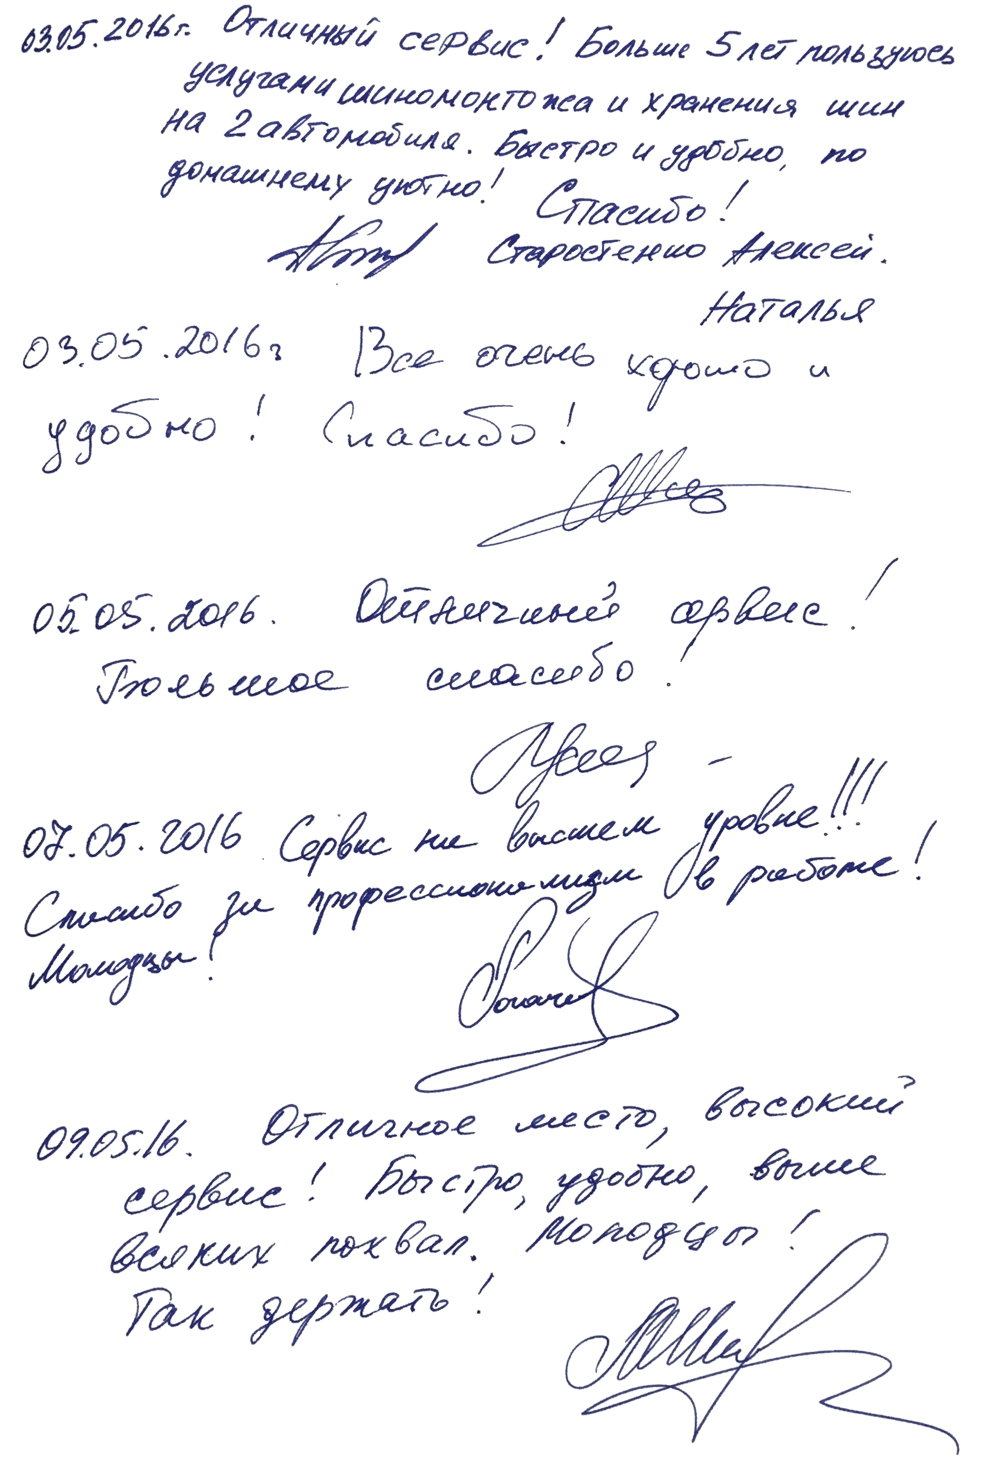 03.05.2016г. Отличный сервис! Больше 5 лет пользуюсь
услугами шиномонтожа и хранения шин
на 2 автомобиля. Быстро и удобно, по
домашнему уютно! Спасибо!
Старостенко Алексей.
Наталья
03.05.2016г Все очень хорошо и
удобно! Спасибо!
05.05.2016. Отличный сервис!
Большое спасибо!
07.05.2016 Сервис на высшем уровне!!!
Спасибо за профессионализм в работе!
Молодцы!
09.05.16. Отличное место, высокий
сервис! Быстро, удобно, выше
всяких похвал. Молодцы!
Так держать!